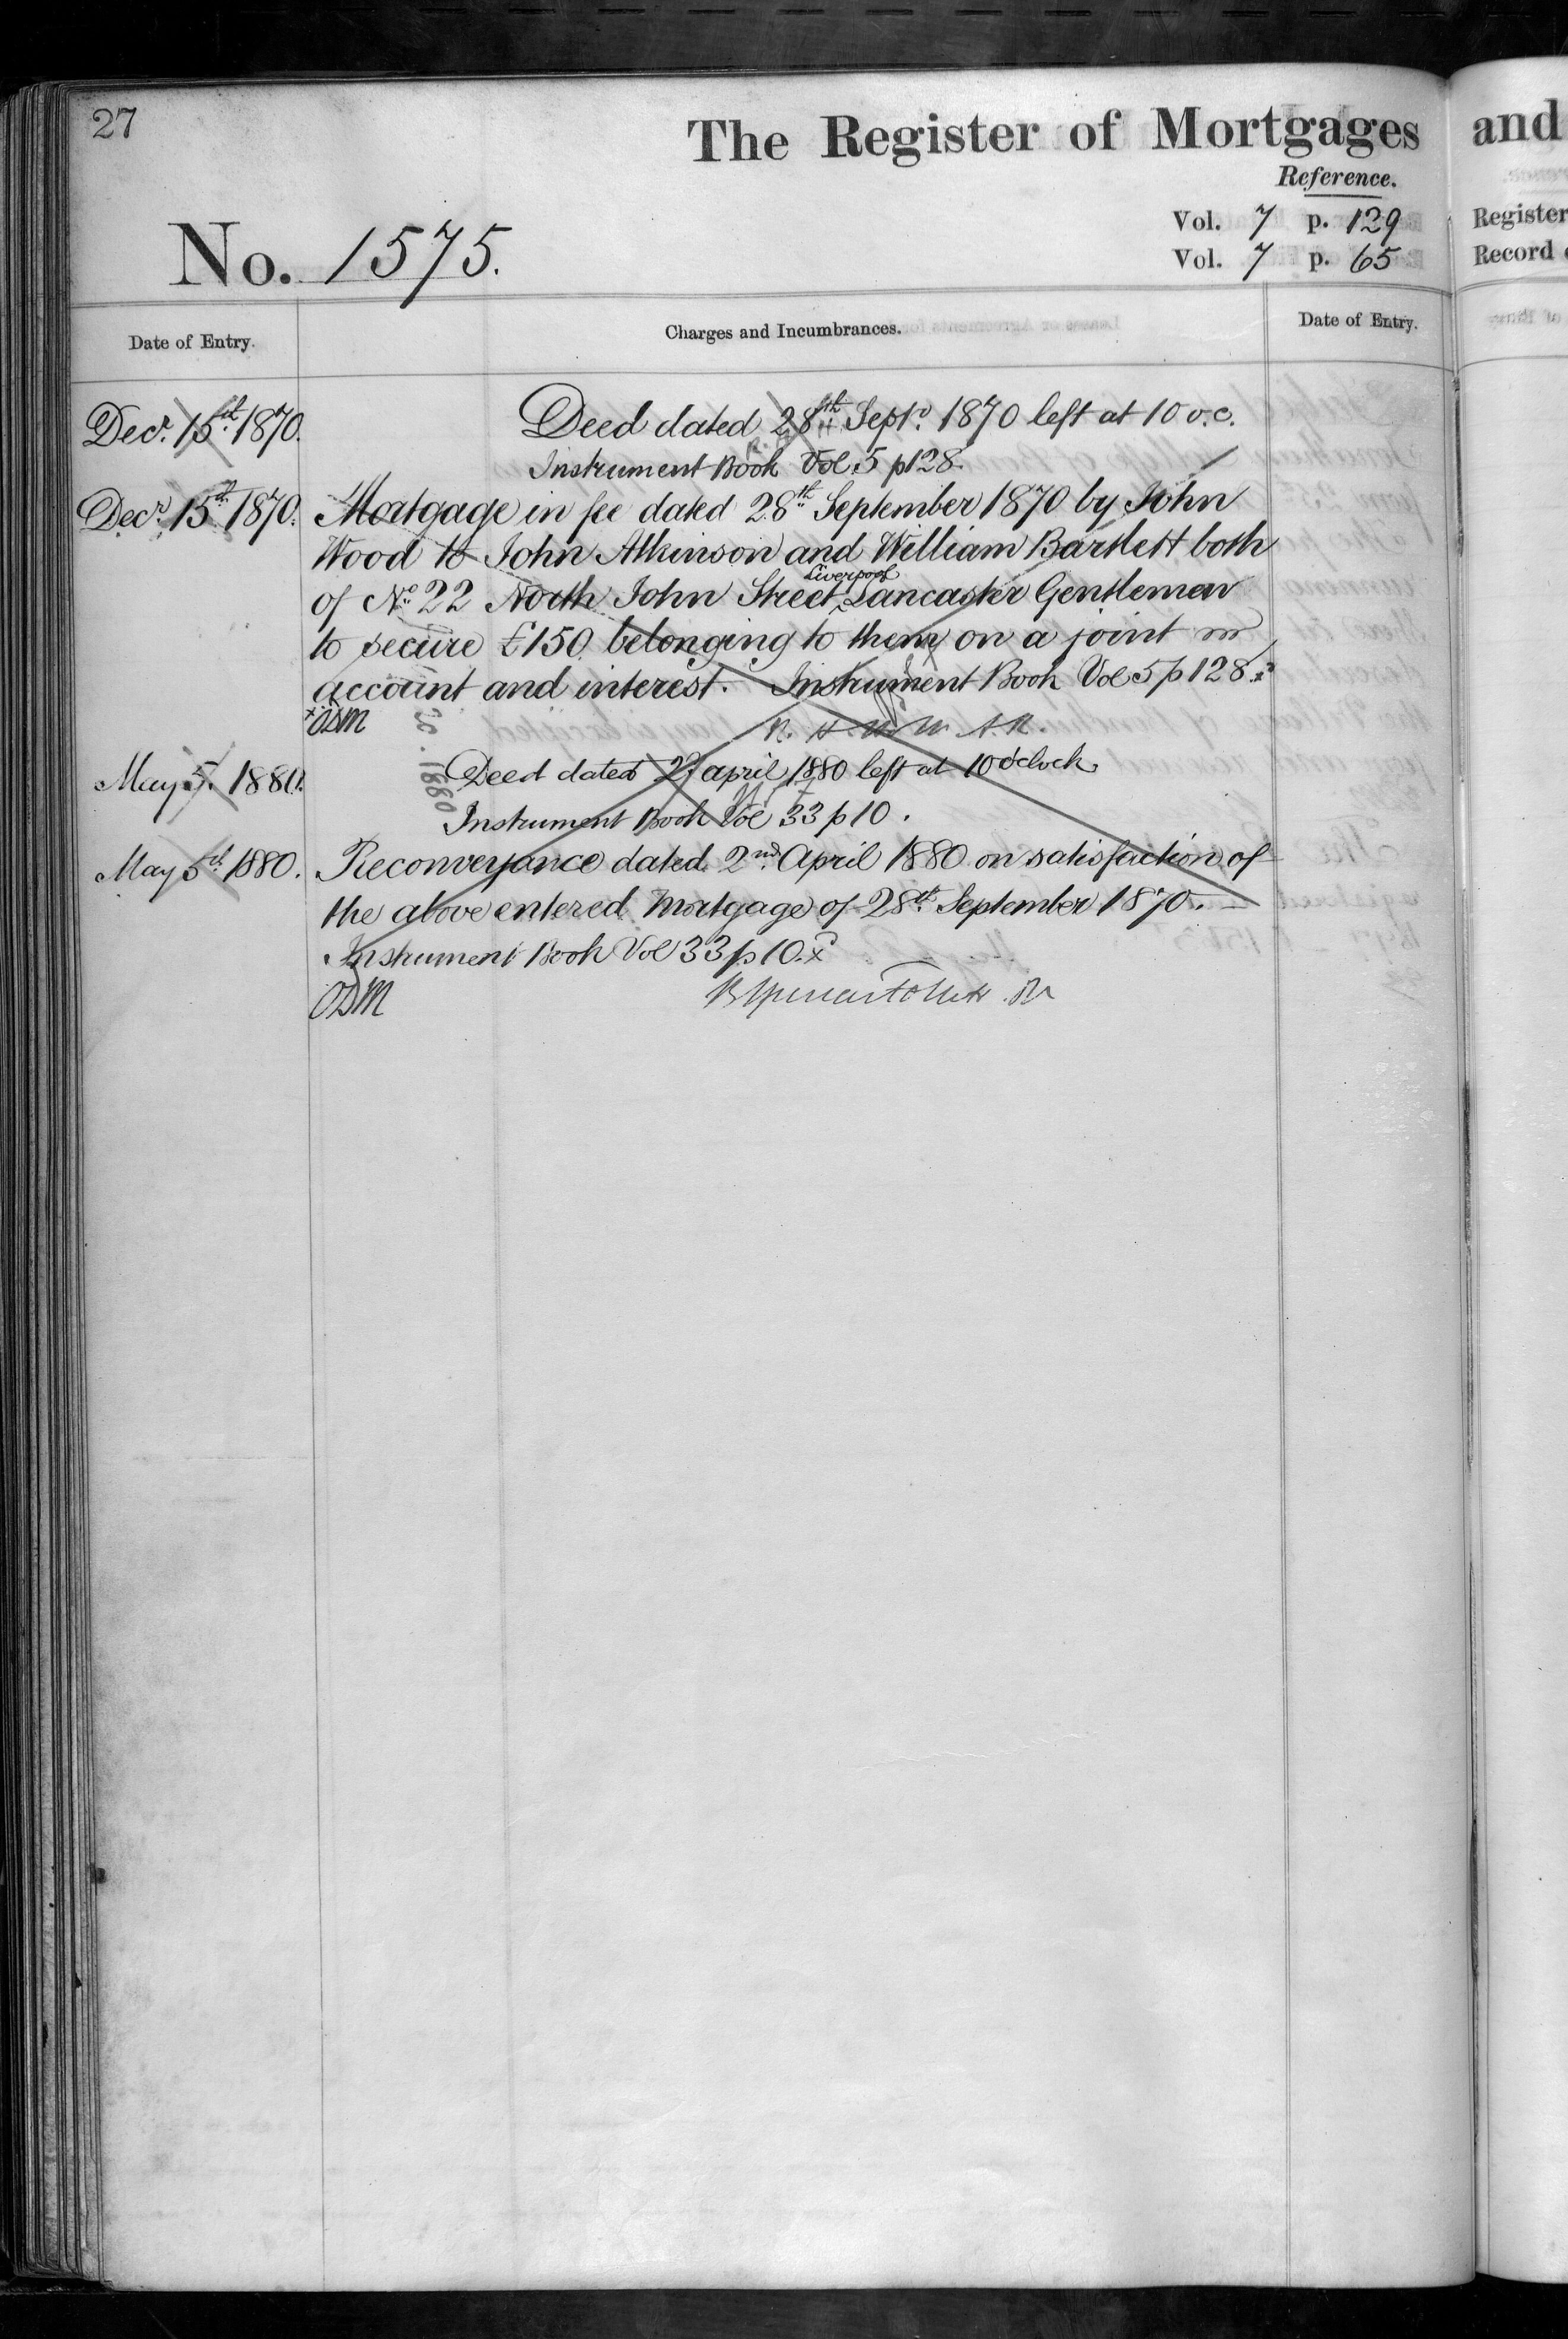 27
The Register of Mortgages
and
Reference.
Vol. 7 p. 129
Register
No. 1575.
Vol. 7 p. 65
Record
Date of Entry.
Charges and Incumbrances.
Date of Entry.
Decr. 15th 1870.
Deed dated 28th Septr. 1870 left at 10 o.c.
Instrument Book Vol. 5 p 128.
Decr. 15th 1870.
Mortgage in fee dated 28th September 1870 by John
Wood to John Atkinson and William Bartlett both
of No. 22 North John Street Liverpool Lancaster Gentlemen
to secure £150 belonging to them on a joint
account and interest. Instrument Book Vol 5 p 128.
ODM
1880
May 5. 1880.
Deed dated 2 April 1880 left at 10 o'clock
Instrument Book Vol 33 p 10.
May 5th 1880.
Reconveyance dated 2nd April 1880 on satisfaction of
the above entered Mortgage of 28th September 1870.
Instrument Book Vol 33 p 10.
ODM